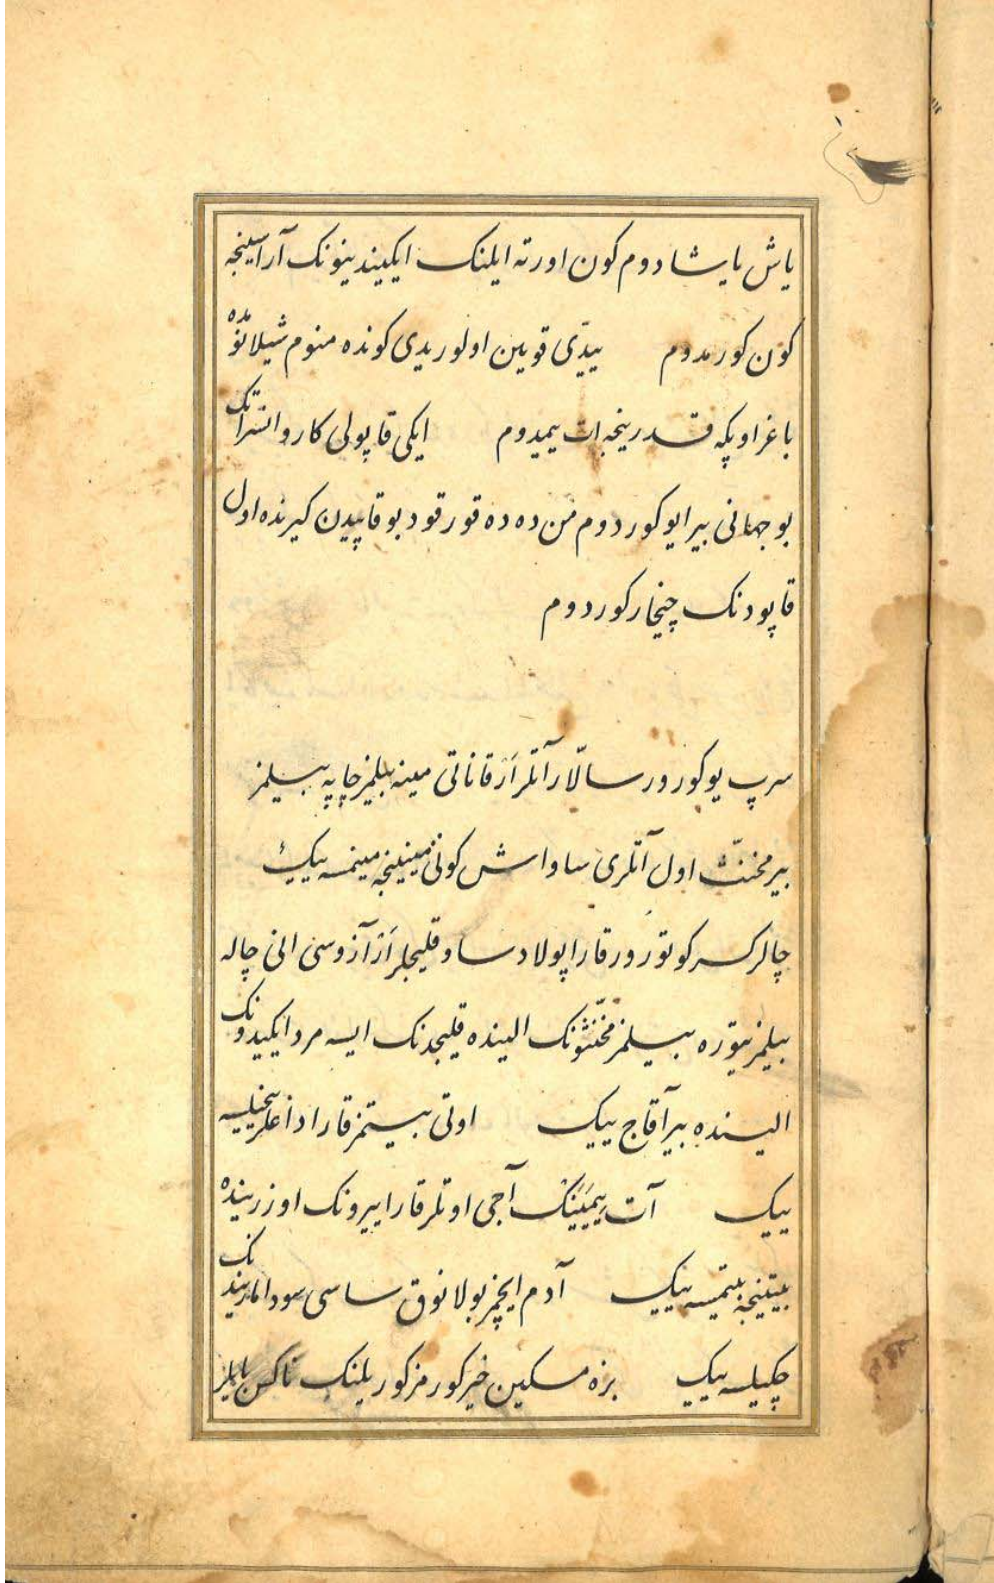 یاش یاشادوم کون اورته ایلنک ایکیندینونک آراسینجه
کون کورمدوم ییدّی قوین اولوریدی کونده منوم شیلانوْمده
باغز اوپکه قدرینجه ات ییمیدوم ایکی قاپولی کاروانسراتک
بو جهانی بیر ایو کوردوم من ده ده قورقود بو قاپیدن کیرنده اول
قاپودنک چیخار کوردوم
سرپ یوکورور سالّار آتلر اَرْ قاناتی مینه بیلمز چاپه بیلمز
بیر مخنّث اول آتلری ساواش کونی مینینجه مینمسه ییک
چالر کسر کوتورور قارا پولاد ساو قلیجلر اَرْ آزوسی انی چاله
بیلمز یتوّره بیلمز مخنّثونک الینده قلیجدنک ایسه مرد ایکیدونک
الینده بیر آقاج ییک اوتی بیتمز قارا داغلر یخیلسه
ییک آت ییمیَنْک آجی اوتلر قارا ییرونک اوزرینده
بیتینجه بیتمسه ییک آدم ایچمز بولانوق ساسی سودامارینْدنک
چکیلسه ییک بزه مسکین خیر کورمز کوریلنک ناکس بایلر